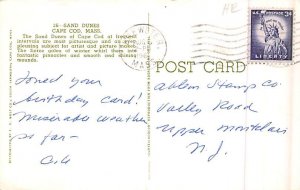 16-SAND DUNES
CAPE COD, MASS.
The Sand Dunes of Cape Cod at frequent
intervals are most picturesque and an ever
pleasing subject for artist and picture maker.
The fierce gales of winter whirl them into
fantastic pinnacles and smooth and shining
mounds.
Loved your
birthday card!
Miserable weather
so far-
POST CARD
HE
U.S. POSTAGE 3¢
LIBERTY
Stamp Co.
Valley Road
Upper Montclair
N.J.